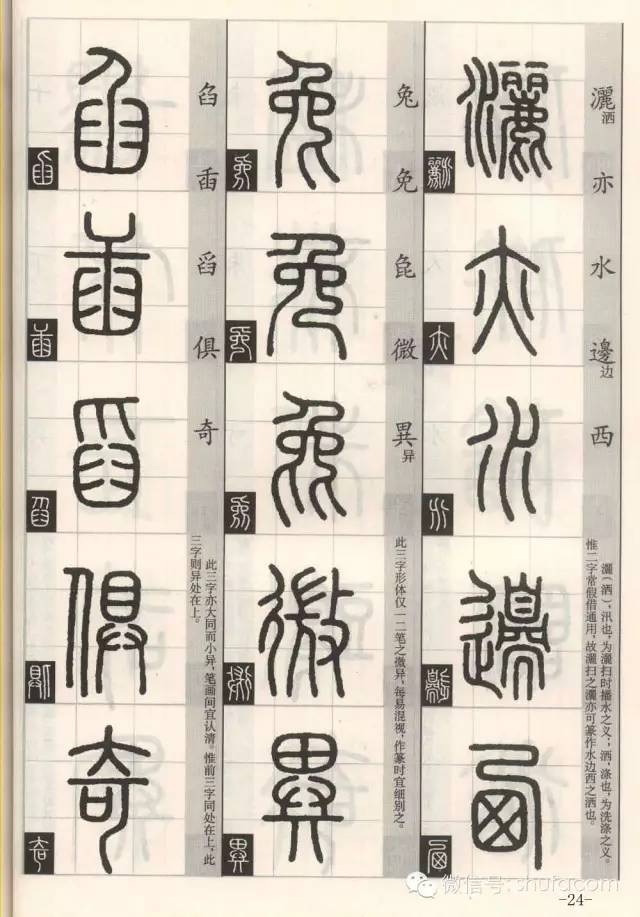 灑洒
亦
水
邊边
西
灑(洒),汛也,为灑扫时播水之义;洒,涤也,为洗涤之义。
惟二字常假借通用,故灑扫之灑亦可篆作水边西之洒也。
兔
免
㲋
微
異异
此三字形体仅一二笔之微异,每易混视,作篆时宜细别之。
臽
臿
舀
俱
奇
此三字亦大同而小异,笔画间宜认清。惟前三字同处在上,此
三字则异处在上。
微信号: shufacom
-24-